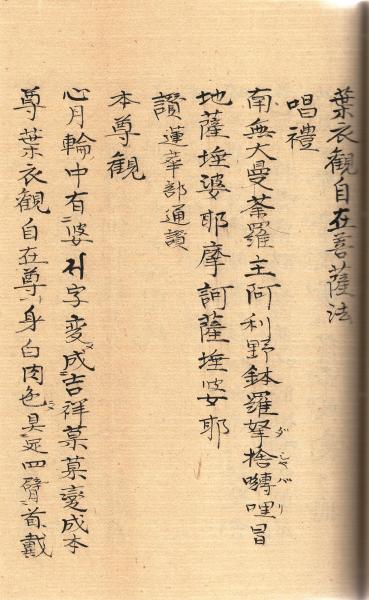 葉衣觀自在菩薩法
唱禮
南無大曼荼羅主阿利野鉢羅拏捨嚩哩冒
地薩埵婆耶摩訶薩埵婆耶
讃蓮華部通讃
本尊觀
心月輪中有婆字変成吉祥菓菓变成本
尊葉衣觀自在尊身白肉色具足四臂首戴